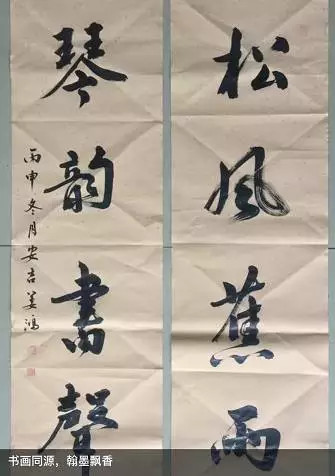 松風蕉雨
琴韵書聲
丙申冬月安吉姜鴻
书画同源，翰墨飘香